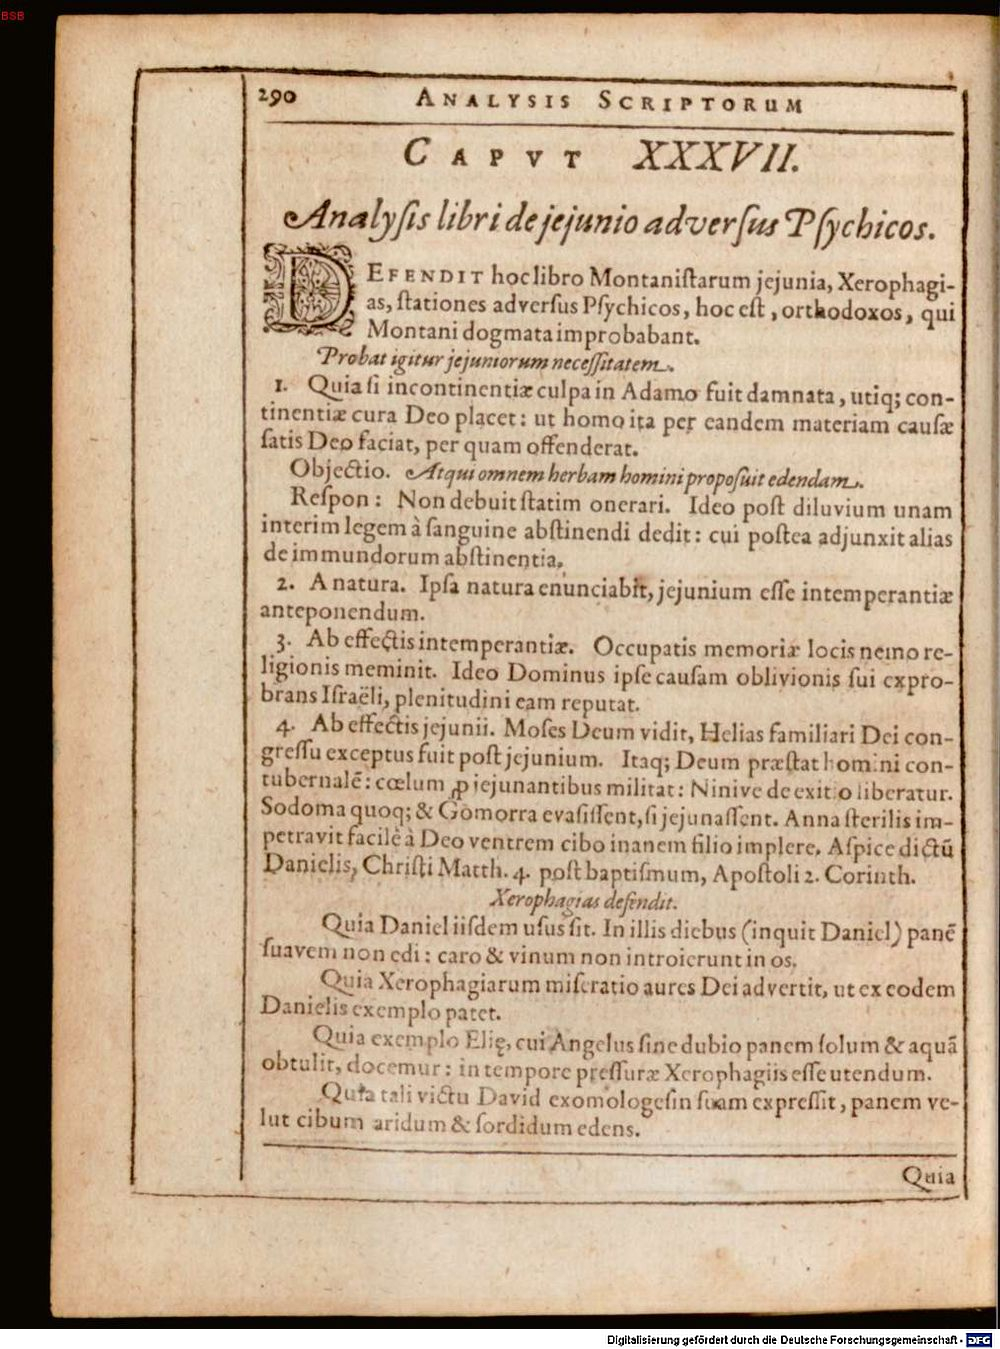 BSB
290 ANALYSIS SCRIPTORUM
CAPVT XXXVII.
Analysis libri de jejunio adversus Psychicos.
DEFENDIT hoc libro Montanistarum jejunia, Xerophagi-
as, stationes adversus Psychicos, hoc est, orthodoxos, qui
Montani dogmata improbabant.
Probat igitur jejuniorum necessitatem.
1. Quia si incontinentiæ culpa in Adamo fuit damnata, utiq; con-
tinentiæ cura Deo placet: ut homo ita per eandem materiam causæ
satis Deo faciat, per quam offenderat.
Objectio. Atqui omnem herbam homini proposuit edendam.
Respon: Non debuit statim onerari. Ideo post diluvium unam
interim legem à sanguine abstinendi dedit: cui postea adjunxit alias
de immundorum abstinentia.
2. A natura. Ipsa natura enunciabit, jejunium esse intemperantiæ
anteponendum.
3. Ab effectis intemperantiæ. Occupatis memoriæ locis nemo re-
ligionis meminit. Ideo Dominus ipse causam oblivionis sui expro-
brans Israëli, plenitudini eam reputat.
4. Ab effectis jejunii. Moses Deum vidit, Helias familiari Dei con-
gressu exceptus fuit post jejunium. Itaq; Deum præstat homini con-
tubernalē: cœlum ꝓ jejunantibus militat: Ninive de exitio liberatur.
Sodoma quoq; & Gomorra evasissent, si jejunassent. Anna sterilis im-
petravit facilè à Deo ventrem cibo inanem filio implere. Aspice dictū
Danielis, Christi Matth. 4. post baptismum, Apostoli 2. Corinth.
Xerophagias defendit.
Quia Daniel iisdem usus sit. In illis diebus (inquit Daniel) panē
suavem non edi: caro & vinum non introierunt in os.
Quia Xerophagiarum miseratio aures Dei advertit, ut ex eodem
Danielis exemplo patet.
Quia exemplo Elię, cui Angelus sine dubio panem solum & aquā
obtulit, docemur: in tempore pressuræ Xerophagiis esse utendum.
Quia tali victu David exomologesin suam expressit, panem ve-
lut cibum aridum & sordidum edens.
Quia
Digitalisierung gefördert durch die Deutsche Forschungsgemeinschaft - DFG